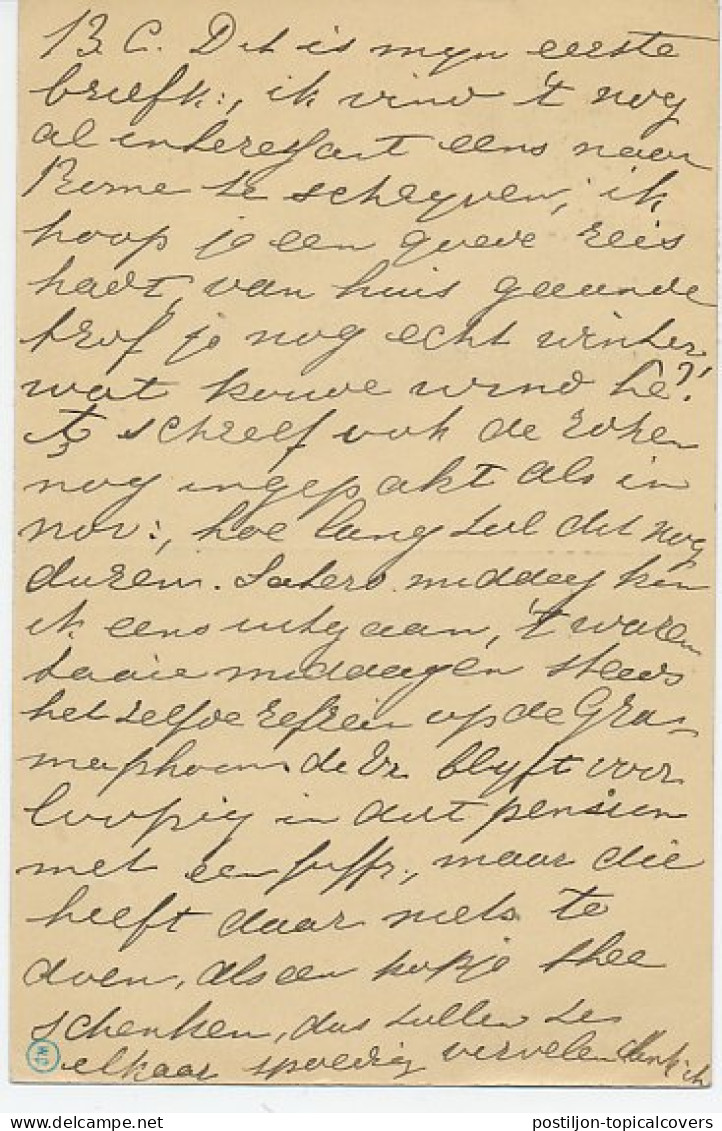 B. C. Dit is mijn eerste
briefk:, ik vind 't nog
al interessant eens naar
Rome te schryven, ik
hoop je een goede reis
hadt, van huis gaande
trof je nog echt winter,
wat kouwe wind hè?!
schreef ook de
nog ingepakt als in
nov:, hoe lang zul dit nog
duren. Saters middag kon
ik eens uitgaan, 't waren
saaie middagen steeds
het zelfde refrein op de Gra-
maphoon. de Er blyft voor
loopig in dat pension
met een juffr:, maar die
heeft daar niets te
doen, als een kopje thee
schenken, dus zullen ze
elkaar spoedig vervelen denk ik
postiljon-topicalcovers